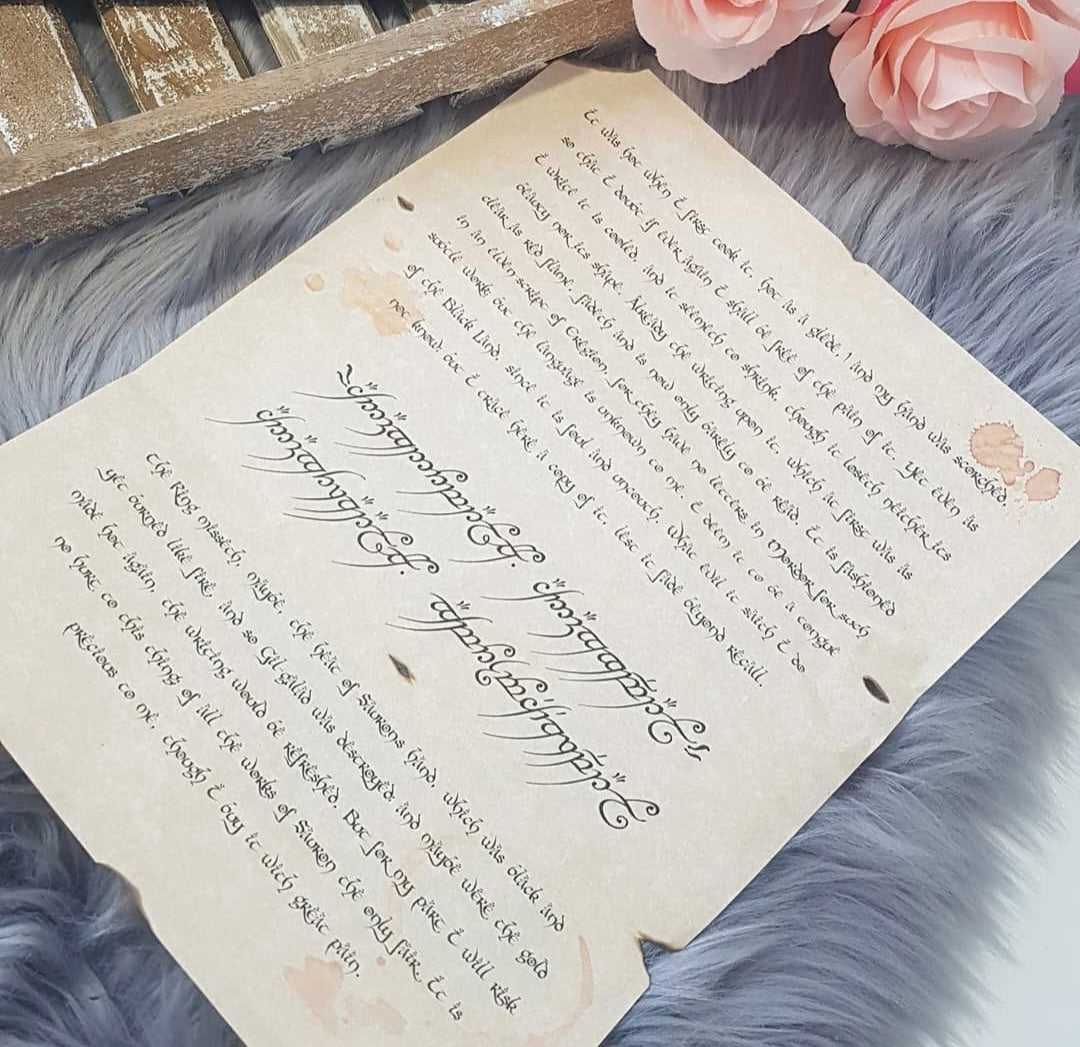 It was hot when I first took it, hot as a glede, 1 and my hand was scorched,
so that I doubt if ever again I shall be free of the pain of it. Yet even as
I write it is cooled, and it seemeth to shrink, though it loseth neither its
beauty nor its shape. Already the writing upon it, which at first was as
clear as red flame, fadeth and is now only barely to be read. It is fashioned
in an elven script of Eregion, for they have no letters in Mordor for such
subtle work, but the language is unknown to me. I deem it to be a tongue
of the Black Land, since it is foul and uncouth. What evil it saith I do
not know, but I trace here a copy of it, lest it fade beyond recall.
The Ring misseth, maybe, the heat of Saurons hand, which was black and
yet borned like fire, and so Gil-galad was destroyed, and maybe were the gold
made hot again, the writing would be refreshed. But for my part I will risk
no hurt to this thing of all the works of Sauron the only fair. It is
precious to me, though I buy it with great pain.